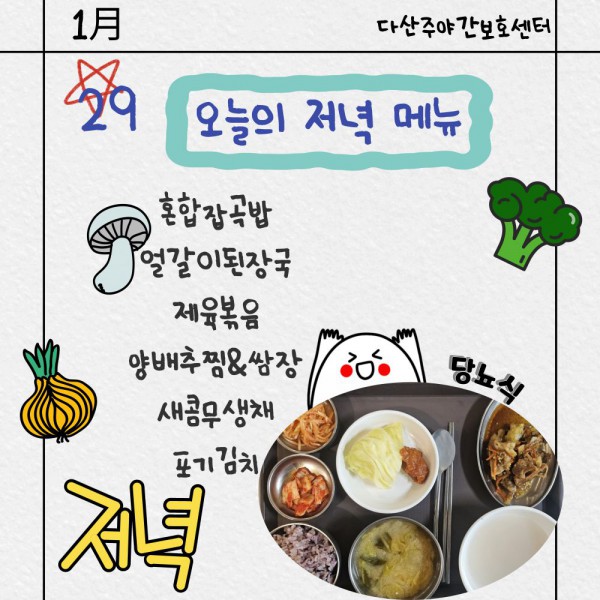 1月
다산주야간보호센터
29
오늘의 저녁 메뉴
혼합잡곡밥
얼갈이된장국
제육볶음
양배추찜&쌈장
새콤무생채
포기김치
당뇨식
저녁